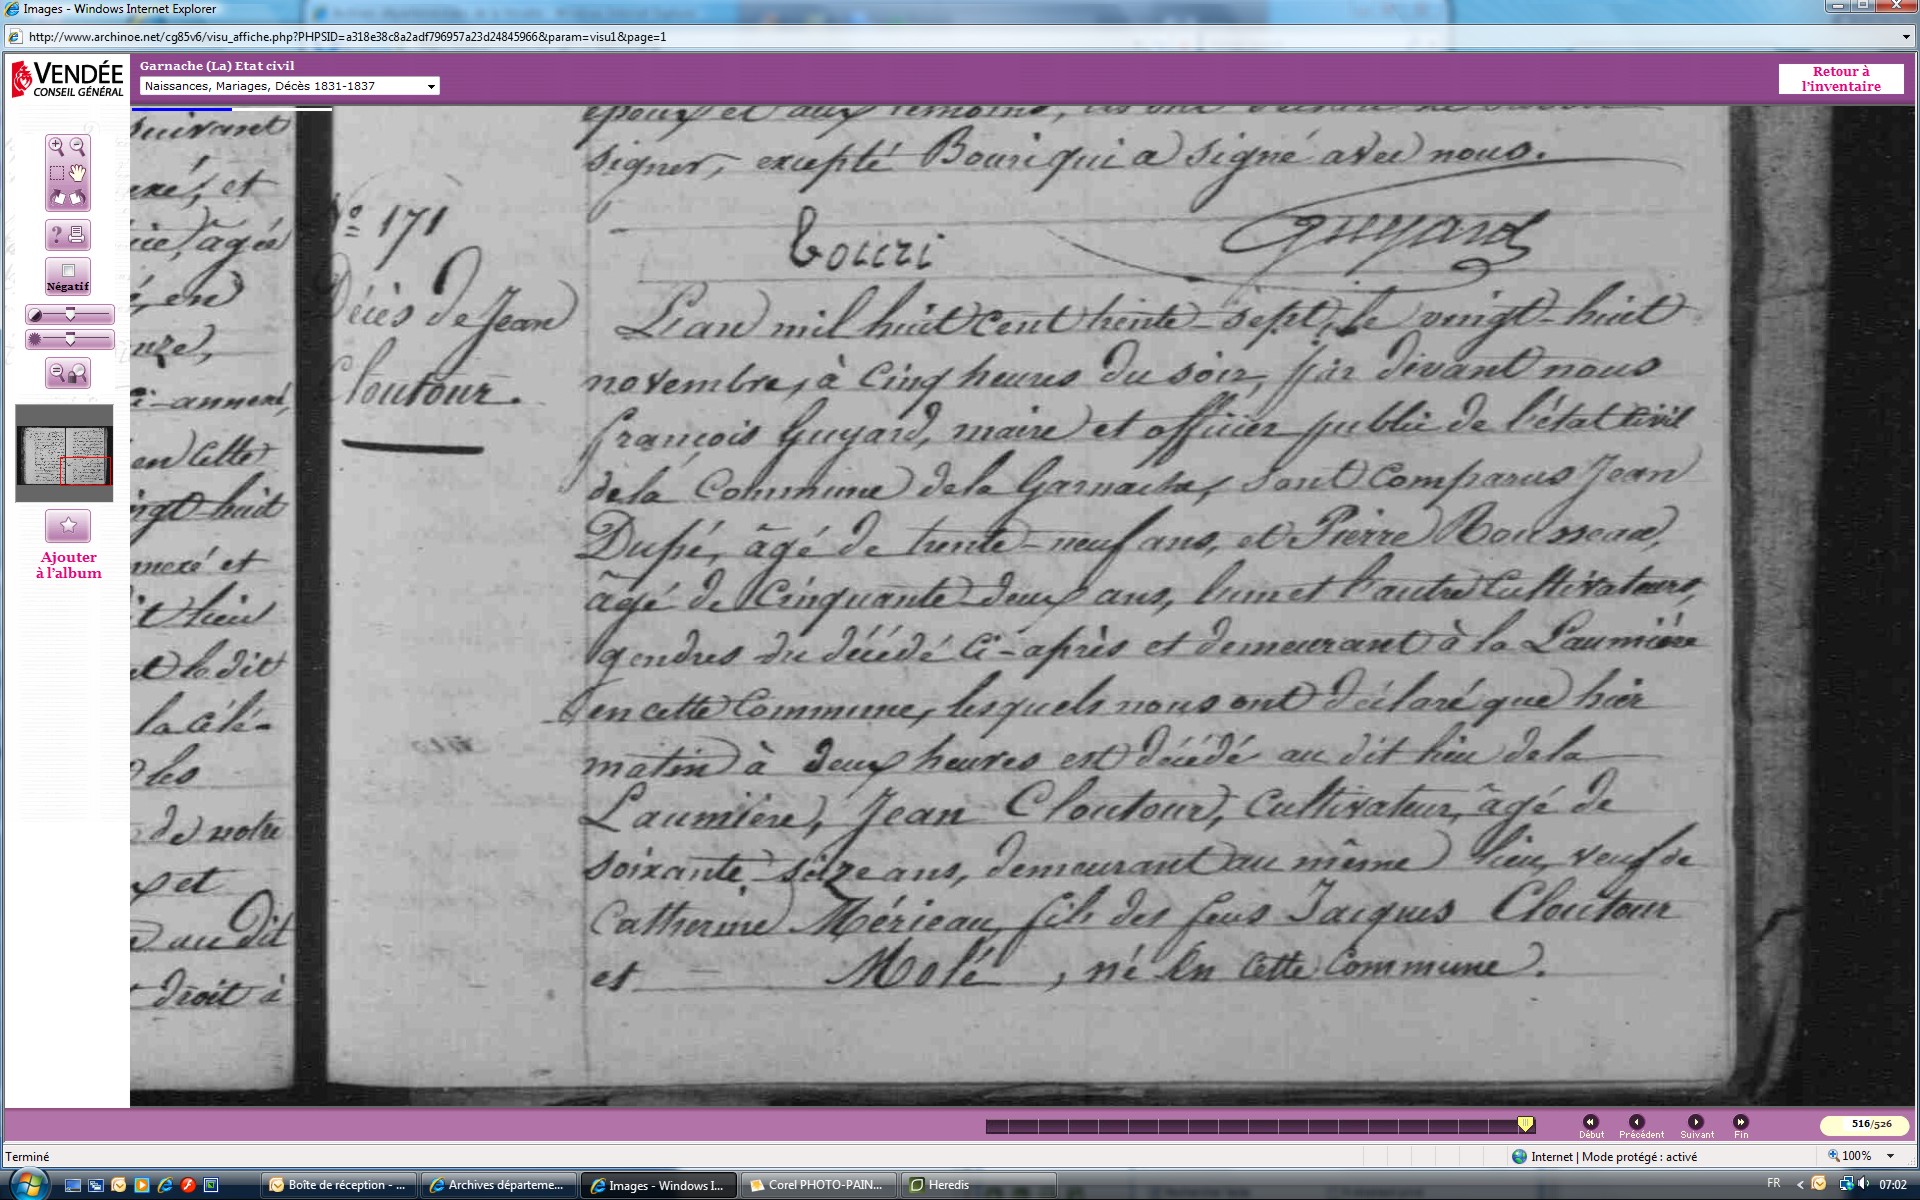 Images - Windows Internet Explorer
http://www.archinoe.net/cg85v6/visu_affiche.php?PHPSID=a318e38c8a2adf796957a23d24845966&param=visu1&page=1
VENDÉE
CONSEIL GÉNÉRAL
Garnache (La) Etat civil
Naissances, Mariages, Décès 1831-1837
Retour à
l'inventaire
Négatif
Ajouter
à l'album
suivant
exé, et
âgée
en
onze,
ci-annexé,
en cette
vingt-huit
annexé et
dit lieu
et la dit
la célé-
les
de notre
et
au dit
droit à
époux et aux témoins,
signer, excepté Bouri qui a signé avec nous.
Bouri Guyard
N° 171
Décès de Jean
Cloutour.
L'an mil huit cent trente-sept, le vingt-huit
novembre, à cinq heures du soir, par devant nous
françois Guyard, maire et officier public de l'état civil
de la Commune de la Garnache, sont comparus Jean
Dupé, âgé de trente-neuf ans, et Pierre Rousseau,
âgé de cinquante-deux ans, l'un et l'autre cultivateurs,
gendres du décédé ci-après et demeurant à la Laumière
en cette Commune, lesquels nous ont déclaré que hier
matin à deux heures est décédé au dit lieu de la
Laumière, Jean Cloutour, cultivateur, âgé de
soixante-seize ans, demeurant au même lieu, veuf de
Catherine Mérieau, fils des feus Jacques Cloutour
et — Molé, né en cette commune.
Début Précédent Suivant Fin
516/526
Terminé
Internet | Mode protégé : activé
100%
Boîte de réception - ...
Archives départeme...
Images - Windows I...
Corel PHOTO-PAIN...
Heredis
FR
07:02